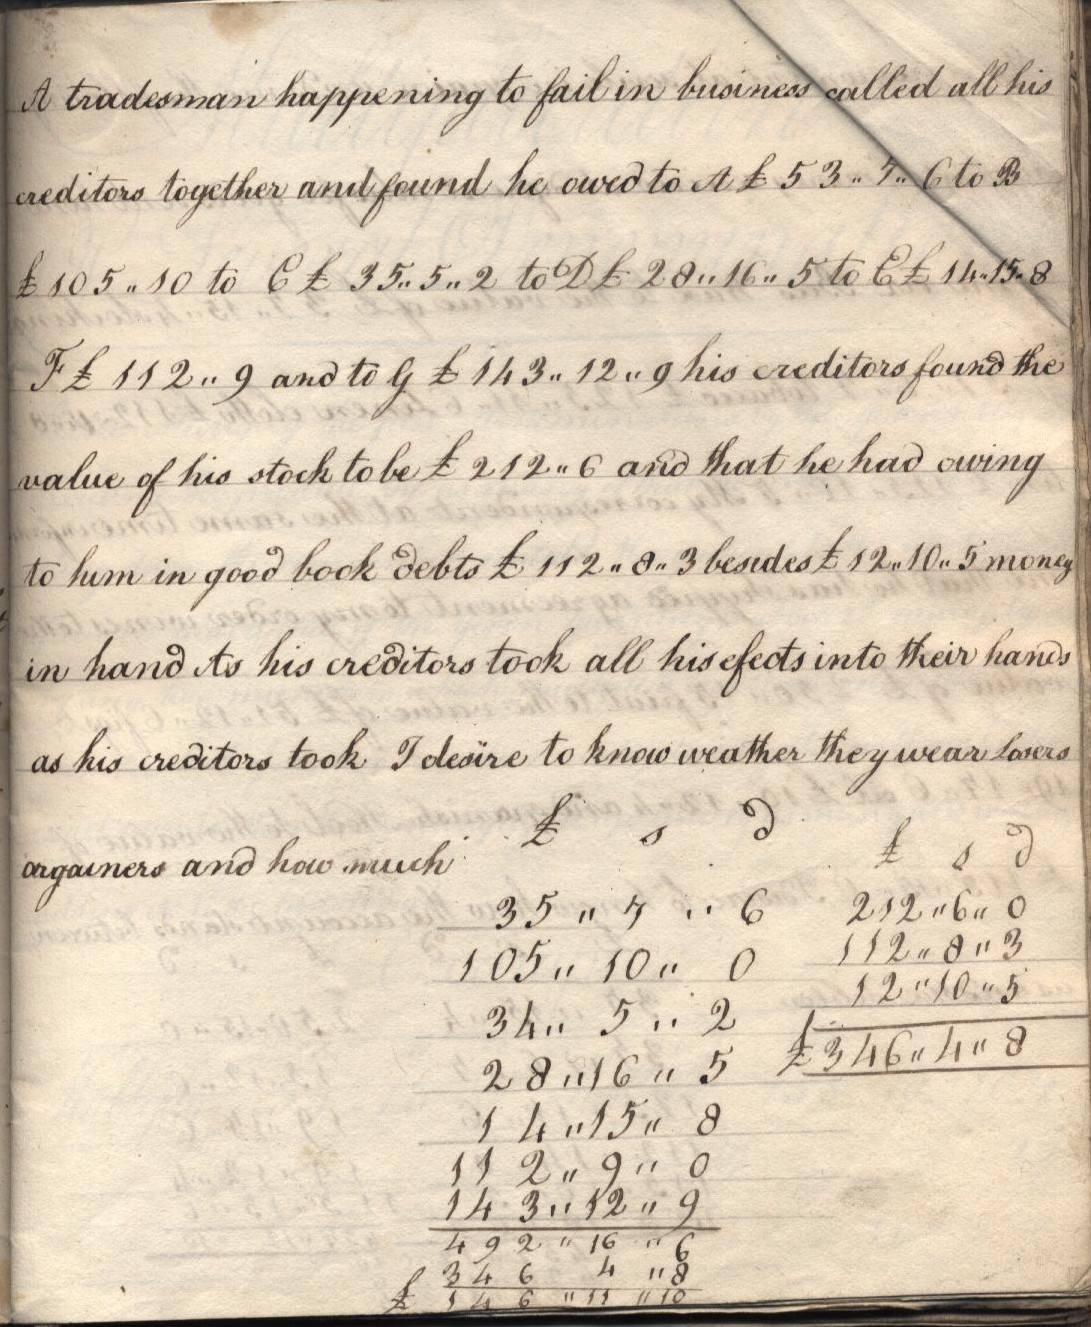 A tradesman happening to fail in business called all his
creditors together and found he owed to A £ 53 " 7 " 6 to B
£ 105 " 10 to C £ 35 " 5 " 2 to D £ 28 " 16 " 5 to E £ 14 " 15 " 8
F £ 112 " 9 and to G £ 143 " 12 " 9 his creditors found the
value of his stock to be £ 212 " 6 and that he had owing
to him in good book debts £ 112 " 8 " 3 besides £ 12 " 10 " 5 money
in hand As his creditors took all his efects into their hands
as his creditors took I desire to know weather they wear losers
orgainers and how much
£ s d
35 " 7 " 6
105 " 10 " 0
34 " 5 " 2
28 " 16 " 5
14 " 15 " 8
112 " 9 " 0
143 " 12 " 9
492 " 16 " 6
346 4 " 8
£ 146 " 11 " 10
£ s d
212 " 6 " 0
112 " 8 " 3
12 " 10 " 5
£ 346 " 4 " 8